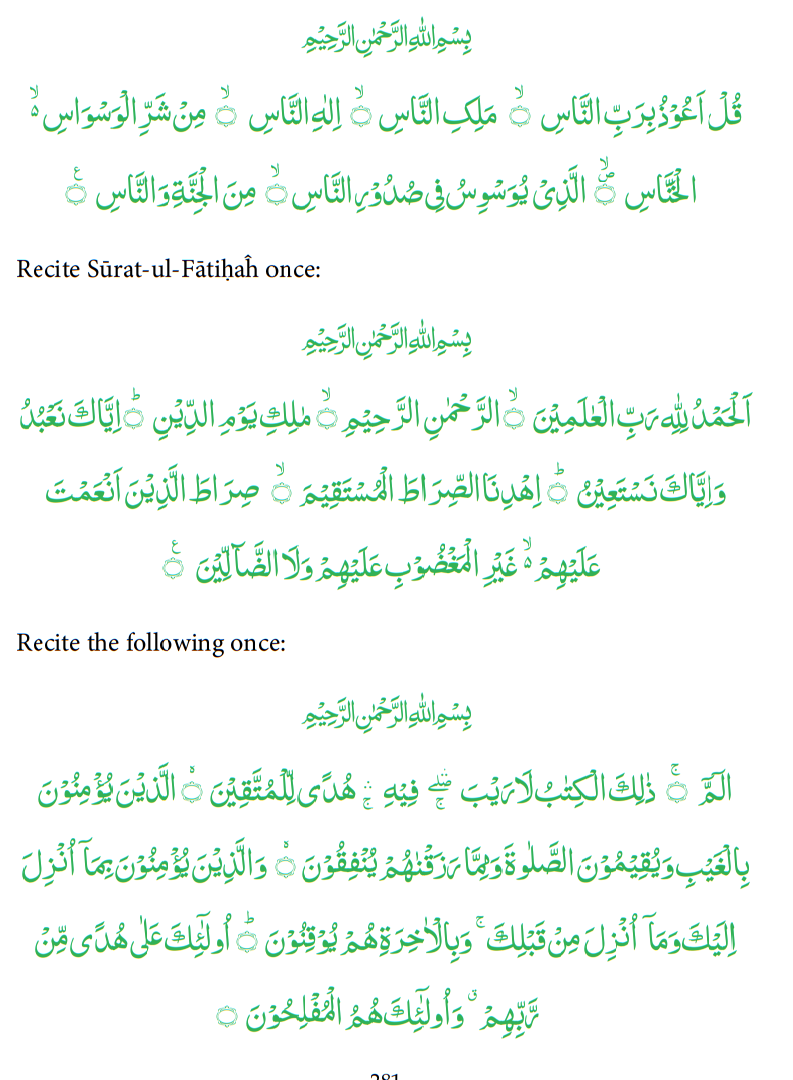 بِسْمِ اللّٰهِ الرَّحْمٰنِ الرَّحِيْمِ
قُلْ اَعُوْذُ بِرَبِّ النَّاسِ ۙ۝ مَلِكِ النَّاسِ ۙ۝ اِلٰهِ النَّاسِ ۙ۝ مِنْ شَرِّ الْوَسْوَاسِ ۙ۬
الْخَنَّاسِ ۪ۙ۝ الَّذِىْ يُوَسْوِسُ فِىْ صُدُوْرِ النَّاسِ ۙ۝ مِنَ الْجِنَّةِ وَ النَّاسِ ۝
Recite Sūrat-ul-Fātiḥaĥ once:
بِسْمِ اللّٰهِ الرَّحْمٰنِ الرَّحِيْمِ
اَلْحَمْدُ لِلّٰهِ رَبِّ الْعٰلَمِيْنَ ۙ۝ الرَّحْمٰنِ الرَّحِيْمِ ۙ۝ مٰلِكِ يَوْمِ الدِّيْنِ ؕ۝ اِيَّاكَ نَعْبُدُ
وَ اِيَّاكَ نَسْتَعِيْنُ ؕ۝ اِهْدِنَا الصِّرَاطَ الْمُسْتَقِيْمَ ۙ۝ صِرَاطَ الَّذِيْنَ اَنْعَمْتَ
عَلَيْهِمْ ۙ۬ غَيْرِ الْمَغْضُوْبِ عَلَيْهِمْ وَلَا الضَّآلِّيْنَ ۝
Recite the following once:
بِسْمِ اللّٰهِ الرَّحْمٰنِ الرَّحِيْمِ
الٓمّٓ ۚ۝ ذٰلِكَ الْكِتٰبُ لَا رَيْبَ ۖۚۛ فِيْهِ ۚۛ هُدًى لِّلْمُتَّقِيْنَ ۙ۝ الَّذِيْنَ يُؤْمِنُوْنَ
بِالْغَيْبِ وَ يُقِيْمُوْنَ الصَّلٰوةَ وَ مِمَّا رَزَقْنٰهُمْ يُنْفِقُوْنَ ۙ۝ وَ الَّذِيْنَ يُؤْمِنُوْنَ بِمَاۤ اُنْزِلَ
اِلَيْكَ وَ مَاۤ اُنْزِلَ مِنْ قَبْلِكَ ۚ وَ بِالْاٰخِرَةِ هُمْ يُوْقِنُوْنَ ؕ۝ اُولٰٓئِكَ عَلٰى هُدًى مِّنْ
رَّبِّهِمْ ۗ وَ اُولٰٓئِكَ هُمُ الْمُفْلِحُوْنَ ۝
281